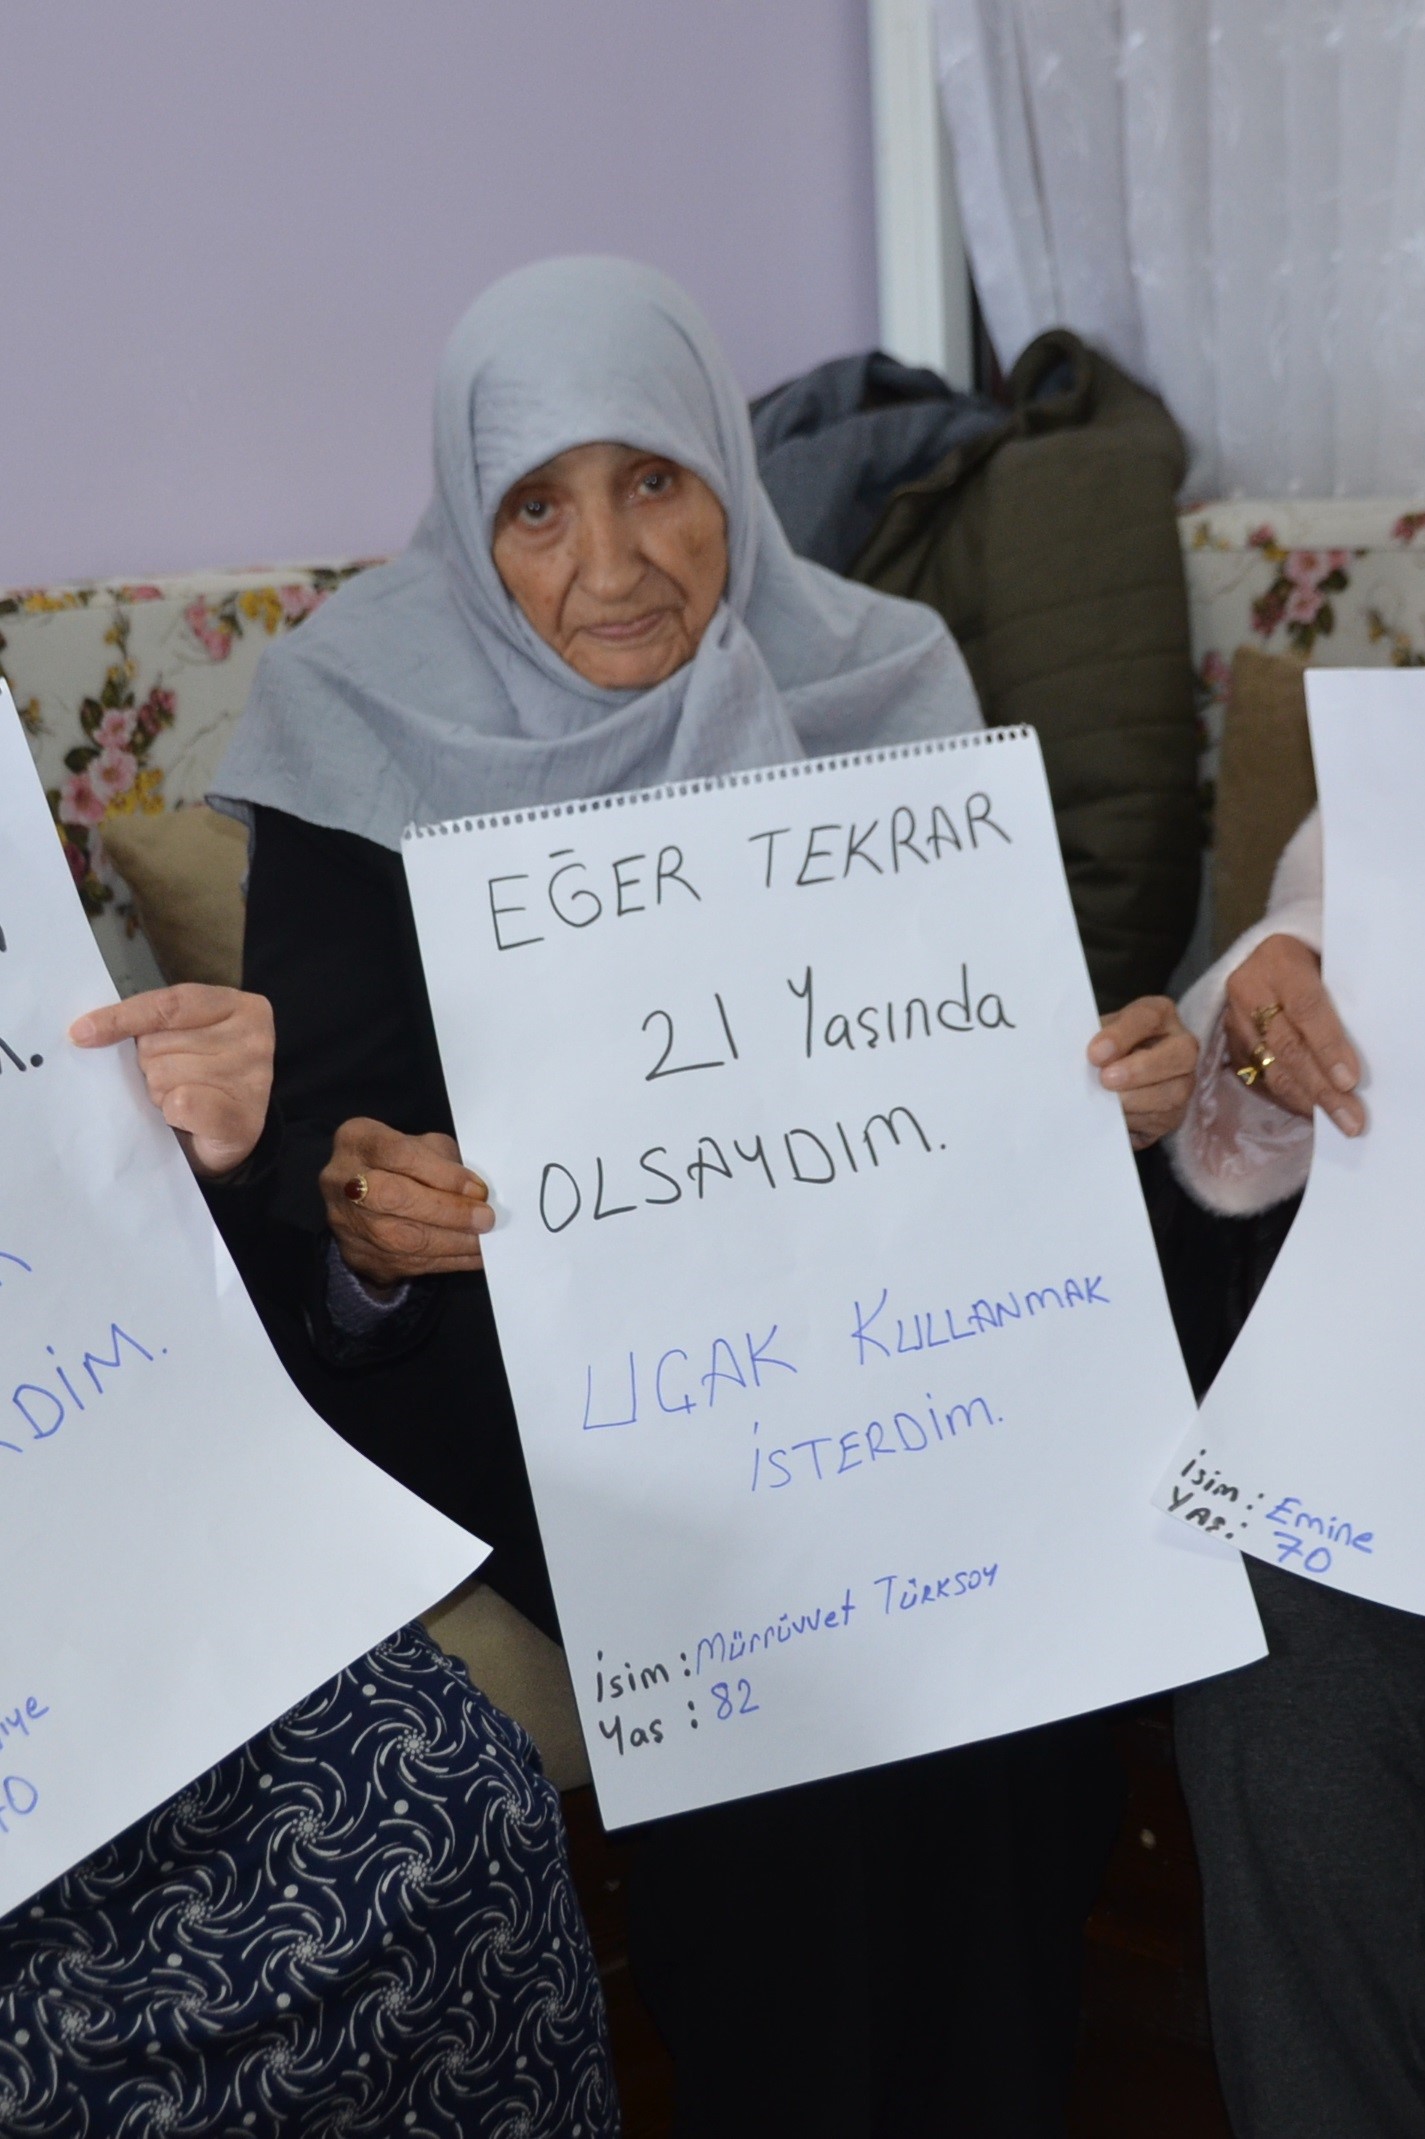 EĞER TEKRAR
21 Yaşında
OLSAYDIM.
UÇAK KULLANMAK
İSTERDİM.
İsim : Mürrüvvet TÜRKSOY
Yas : 82
İsim : Emine
YAŞ : 70
DİM.